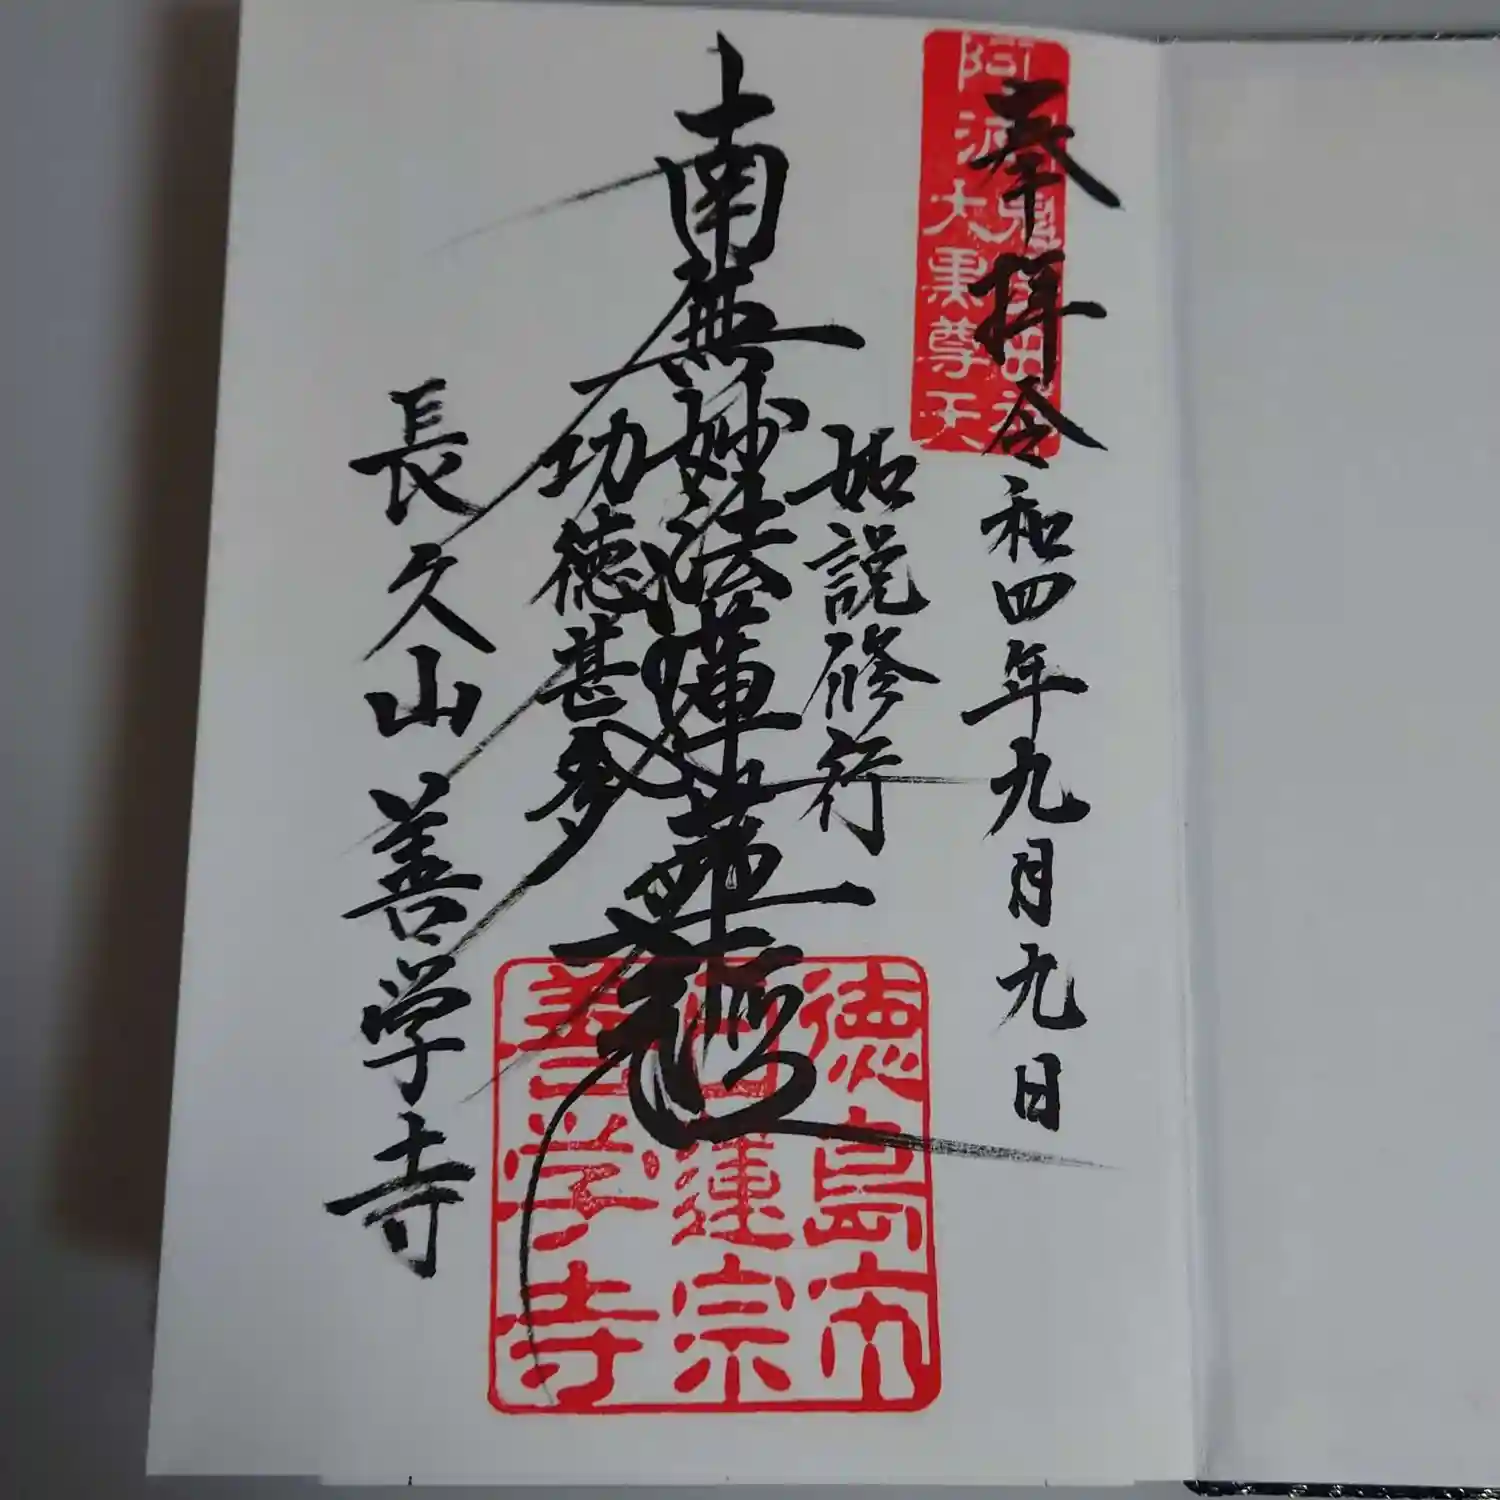 奉拝 令和四年九月九日
如説修行
南無妙法蓮華経
功徳甚多
長久山 善学寺
阿波
大黒尊天
徳島市
日蓮宗
善学寺